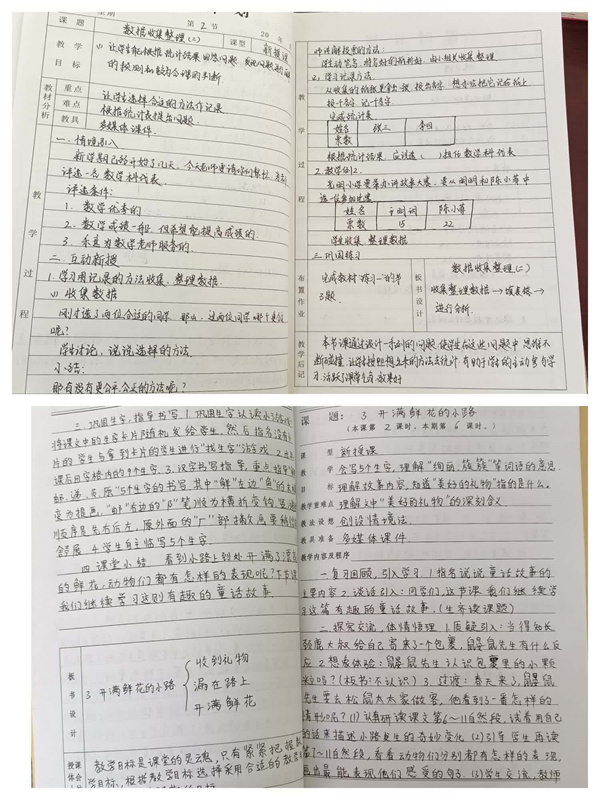 课题
数据收集整理(二)
第2节
课型
新授课
20 年
教学目标
(1)让学生能根据统计结果回答问题,发现问题,进行简
的预测和较为合理的判断.
教材分析
重点
让学生选择合适的方法作记录
难点
根据统计表提出问题.
教具
多媒体课件.
教学过程
一、情境引入
新学期已经开始了几天,今天老师要请你们帮忙,
评选一名数学科代表.
评选条件:
1. 数学优秀的
2. 数学成绩一般,但
3. 乐意为数学老师服务的.
二、互动新授
1.学习用记录的方法收集、整理数据.
(1)收集数据
刚才选了两位合适的同学,那么,这两位同学哪个更合适
呢?
学生讨论,说说选择的方法.
小结:
那有没有更公平、合适的方法呢?
师讲解投票的方法:
(2)学习记录方法
从收集的纸板里拿出一张,报出名字,想办法把它记在纸上
报一个字,记一个字.
完成统计表
姓名 张三 李四
票数
根据统计结果,应该选( )担任数学科代表.
2.教学例2.
光明小学要举办讲故事大赛,要从
选一位参加比赛
姓名 王明词 陈小菲
票数 15 22
学生收集、整理数据
三、巩固练习
布置作业
完成教材“练习一”的第
3题.
板书设计
数据收集整理(二)
收集整理数据→填表格→
进行分析.
教学后记
本节课通过设计一系列的问题,使学生在这些问题中思维不
断碰撞,让学生按照想出来的方法去统计,有助于学生的主动参与学
习,活跃了课堂气氛,效果好
三、巩固生字,指导书写 1.巩固生字认读
将课文中的生字卡片随机发给学生,然后指名没有卡
片的学生与拿到卡片的学生进行“找生字”游戏.2.出示
课后田字格内的5个生字.3.汉字书写指导,重点指导“鲜、
邮、递、员、原”5个生字的书写.其中“鲜”左边“鱼”的末横
变为提画,“邮”右边的“阝”笔顺为横折弯钩、竖,
顺序是先右后左,原外面的“厂”部撇
舒展.4.学生自主临写5个生字.
四、课堂小结 看到小路上到处开满了漂亮
的鲜花,动物们都有怎样的表现呢?下节课
我们继续学习这则有趣的童话故事.
板书设计
3 开满鲜花的小路
收到礼物
漏在路上
开满鲜花
教学目标是课堂的灵魂,只有紧紧把握教
学目标,根据教学目标选择采用合适的教
课 题: 3 开满鲜花的小路
(本课第 2 课时,本期第 6 课时.)
课 型 新授课
教学目标 会写5个生字,理解“绚丽、簇簇”等词语的意思.
理解故事内容,知道“美好的礼物”指的是什么.
教学重难点 理解文中“美好的礼物”的深刻含义
教法设想 创设情境法.
教具准备 多媒体课件
教学内容及程序
一、复习回顾,引入学习 1.指名说说童话故事的
主要内容 2.谈话引入:同学们,这节课我们继续学
习这篇有趣的童话故事.(生齐读课题)
二、探究交流,体情悟理 1.质疑引入:当得知长
颈鹿大叔给自己寄来了一个包裹,鼹鼠先生有什么反
应 2.想象体验:鼹鼠先生认识包裹里的小颗
粒吗?(板书:不认识) 3.过渡:春天来了,鼹鼠
先生要去松鼠太太家做客,他看到了一番怎样的
情形呢?(1)认真研读课文第6~11自然段,试着用自己
的话来描述小路发生的奇妙变化 (2)引导学生再读
第7~11自然段,看看动物们分别都有怎样的表现,
画出最能表现他们感受的句子.(3)学生交流,教师